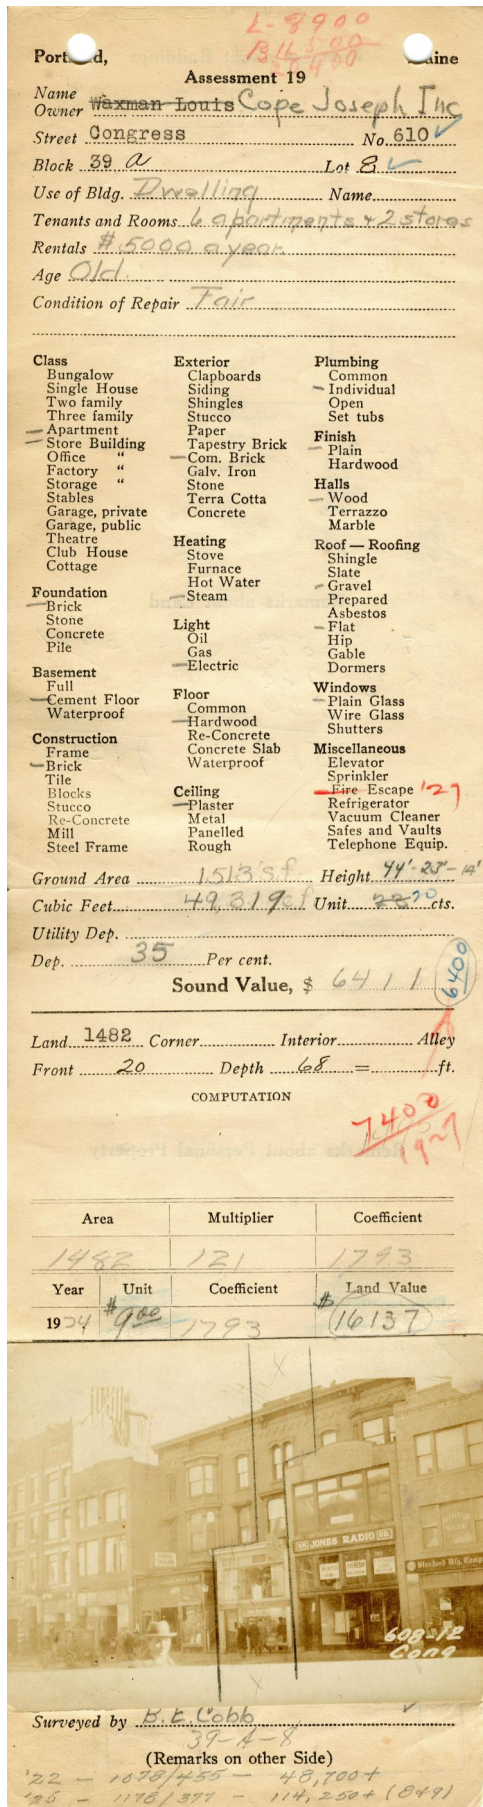 L-8900
B 11,500
20400
Portland, Maine
Assessment 19
Name
Owner Waxman Louis Cope Joseph Inc
Street Congress No. 610
Block 39 a Lot 8
Use of Bldg. Dwelling Name
Tenants and Rooms 6 apartments & 2 stores
Rentals $5000 a year.
Age Old.
Condition of Repair Fair
Class
Bungalow
Single House
Two family
Three family
Apartment
Store Building
Office "
Factory "
Storage "
Stables
Garage, private
Garage, public
Theatre
Club House
Cottage
Foundation
Brick
Stone
Concrete
Pile
Basement
Full
Cement Floor
Waterproof
Construction
Frame
Brick
Tile
Blocks
Stucco
Re-Concrete
Mill
Steel Frame
Exterior
Clapboards
Siding
Shingles
Stucco
Paper
Tapestry Brick
Com. Brick
Galv. Iron
Stone
Terra Cotta
Concrete
Heating
Stove
Furnace
Hot Water
Steam
Light
Oil
Gas
Electric
Floor
Common
Hardwood
Re-Concrete
Concrete Slab
Waterproof
Ceiling
Plaster
Metal
Panelled
Rough
Plumbing
Common
Individual
Open
Set tubs
Finish
Plain
Hardwood
Halls
Wood
Terrazzo
Marble
Roof — Roofing
Shingle
Slate
Gravel
Prepared
Asbestos
Flat
Hip
Gable
Dormers
Windows
Plain Glass
Wire Glass
Shutters
Miscellaneous
Elevator
Sprinkler
Fire Escape '27
Refrigerator
Vacuum Cleaner
Safes and Vaults
Telephone Equip.
Ground Area 1513 sf Height 44'-23'-14'
Cubic Feet 49,319 cf Unit 20 cts.
Utility Dep.
Dep. 35 Per cent.
Sound Value, $ 6411 6400
Land 1482 Corner Interior Alley
Front 20 Depth 68 = ft.
COMPUTATION
7400
1927
Area Multiplier Coefficient
1482 121 1793
Year Unit Coefficient Land Value
1924 $9.00 1793 $16137
JONES RADIO CO.
Standard Mfg. Comp
608-12
Cong
Surveyed by B. E. Cobb
39-A-8
(Remarks on other Side)
'22 - 1078/455 - 48,700+
'25 - 1178/377 - 114,250+ (8+9)